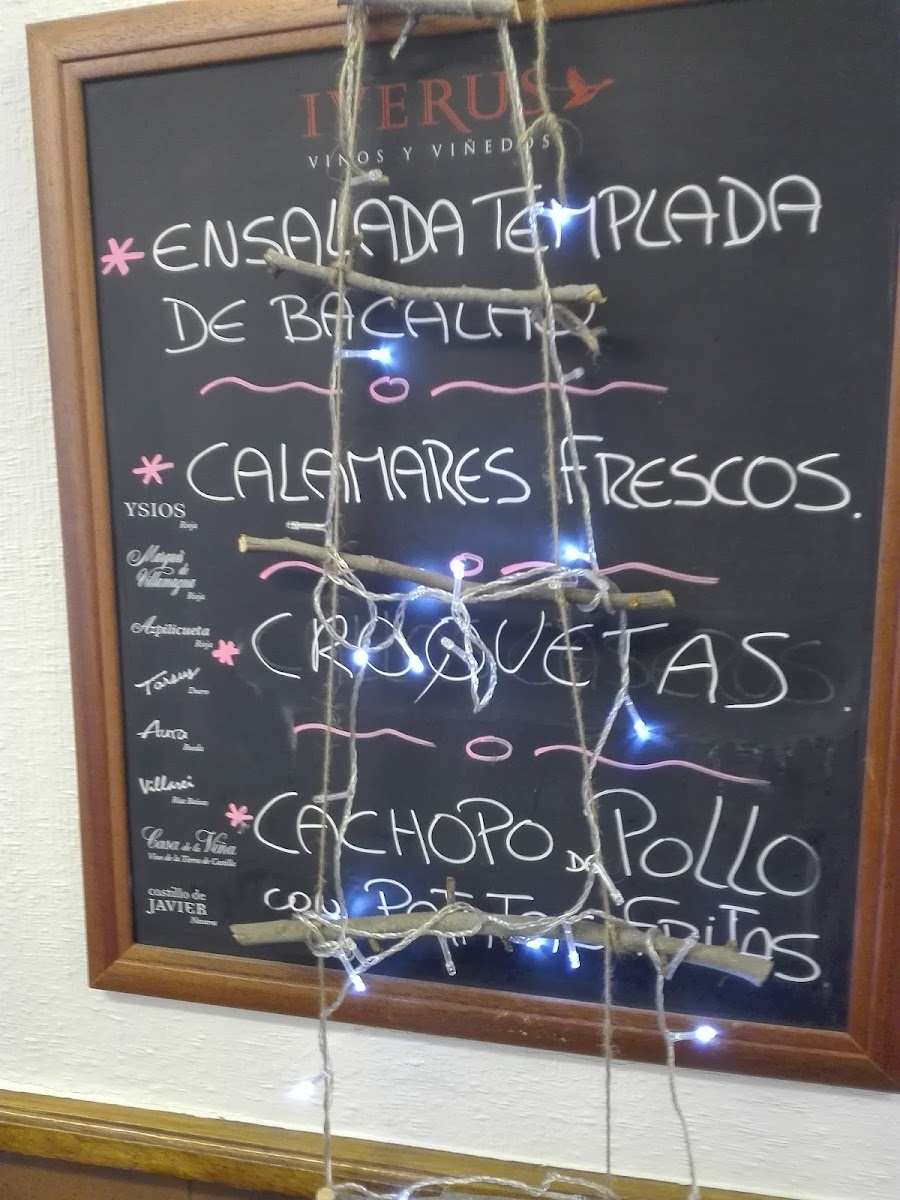 IVERUS
VINOS Y VIÑEDOS
* ENSALADA TEMPLADA
DE BACALAO
* CALAMARES FRESCOS.
YSIOS
Rioja
Marqués de Villamagna
Rioja
Azpilicueta
Rioja
* CROQUETAS.
Tarsus
Duero
Aura
Rueda
Villarei
Rías Baixas
* CACHOPO DE POLLO
Casa de la Viña
Vino de la Tierra de Castilla
CON PATATAS FRITAS
castillo de
JAVIER
Navarra